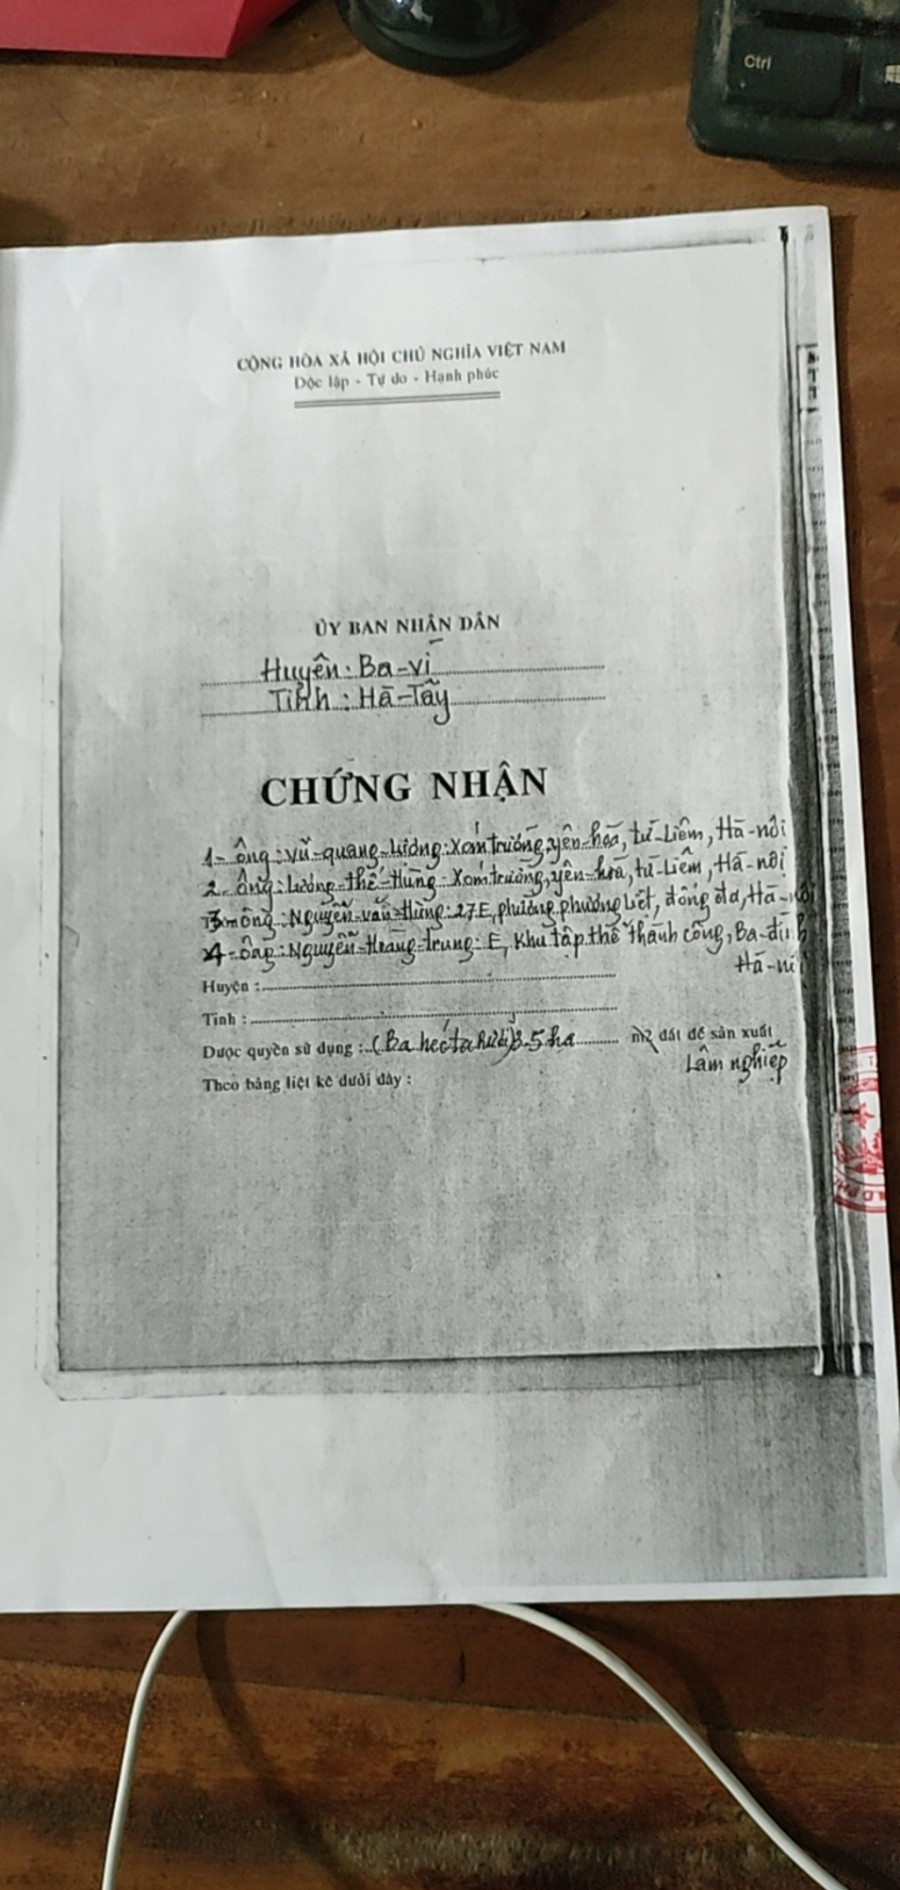 Ctrl
CỘNG HÒA XÃ HỘI CHỦ NGHĨA VIỆT NAM
Độc lập - Tự do - Hạnh phúc
S
T
T
ỦY BAN NHÂN DÂN
Huyện: Ba-vì
Tỉnh: Hà-Tây
CHỨNG NHẬN
1- ông: Vũ-quang-Lương: Xóm trường, yên-hoà, từ-Liêm, Hà-nội
2. ông: Lương-thế-Hùng- Xóm trường, yên-hoà, từ-Liêm, Hà-nội
3- ông: Nguyễn-văn-Hùng: 27E, phường phương Liệt, đống đa, Hà-nội
4- ông: Nguyễn-Hoàng-trung: E, Khu tập thể thành công, Ba-đình
Hà-nội
Huyện :
Tỉnh :
Được quyền sử dụng : (Ba hecta rưỡi) 3.5 ha m2 đất để sản xuất
Lâm nghiệp
Theo bảng liệt kê dưới đây :